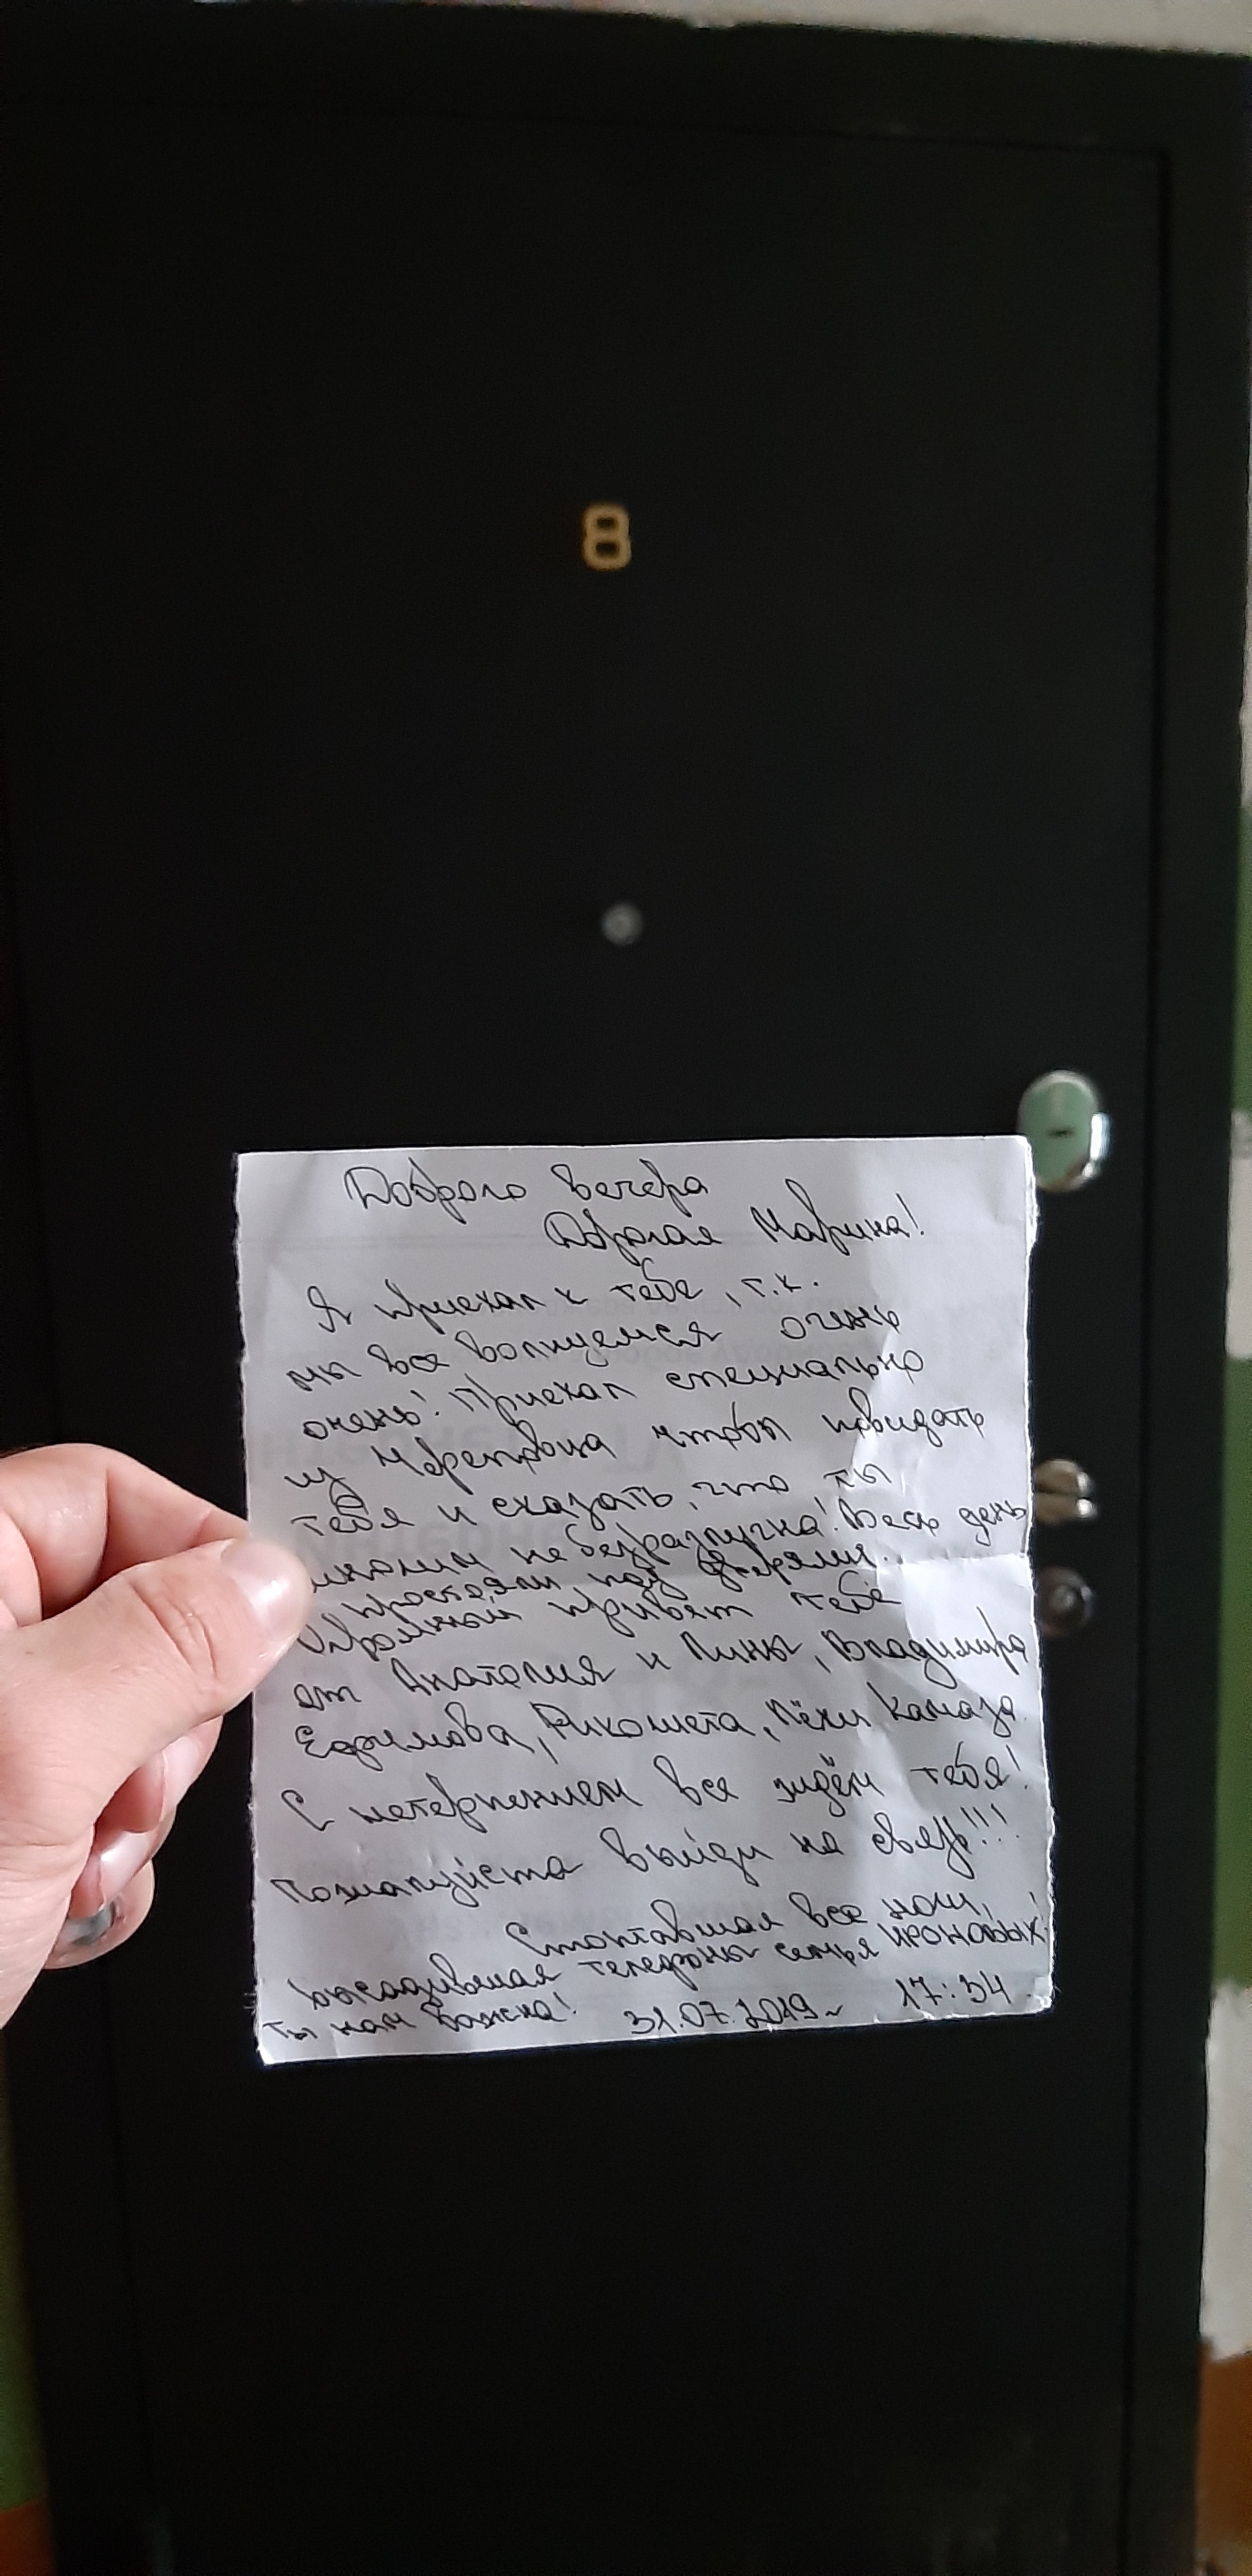 8
Доброго вечера
Дорогая Марина!
Я приехал к тебе, т.к.
мы все волнуемся очень
очень! Приехал специально
из Череповца чтобы повидать
тебя и сказать, что ты
многим не безразлична! Весь день
простояли под дверями..
Огромный привет тебе
от Анатолия и Нины, Владимира
Ефимова, Рикошета, Лёхи Камаза.
С нетерпением все ждём тебя!
Пожалуйста выйди на связь!!!
Стоптавшая все ноги,
высадившая телефоны семья Ироновых!
Ты нам важна! 31.07.2019 17:34